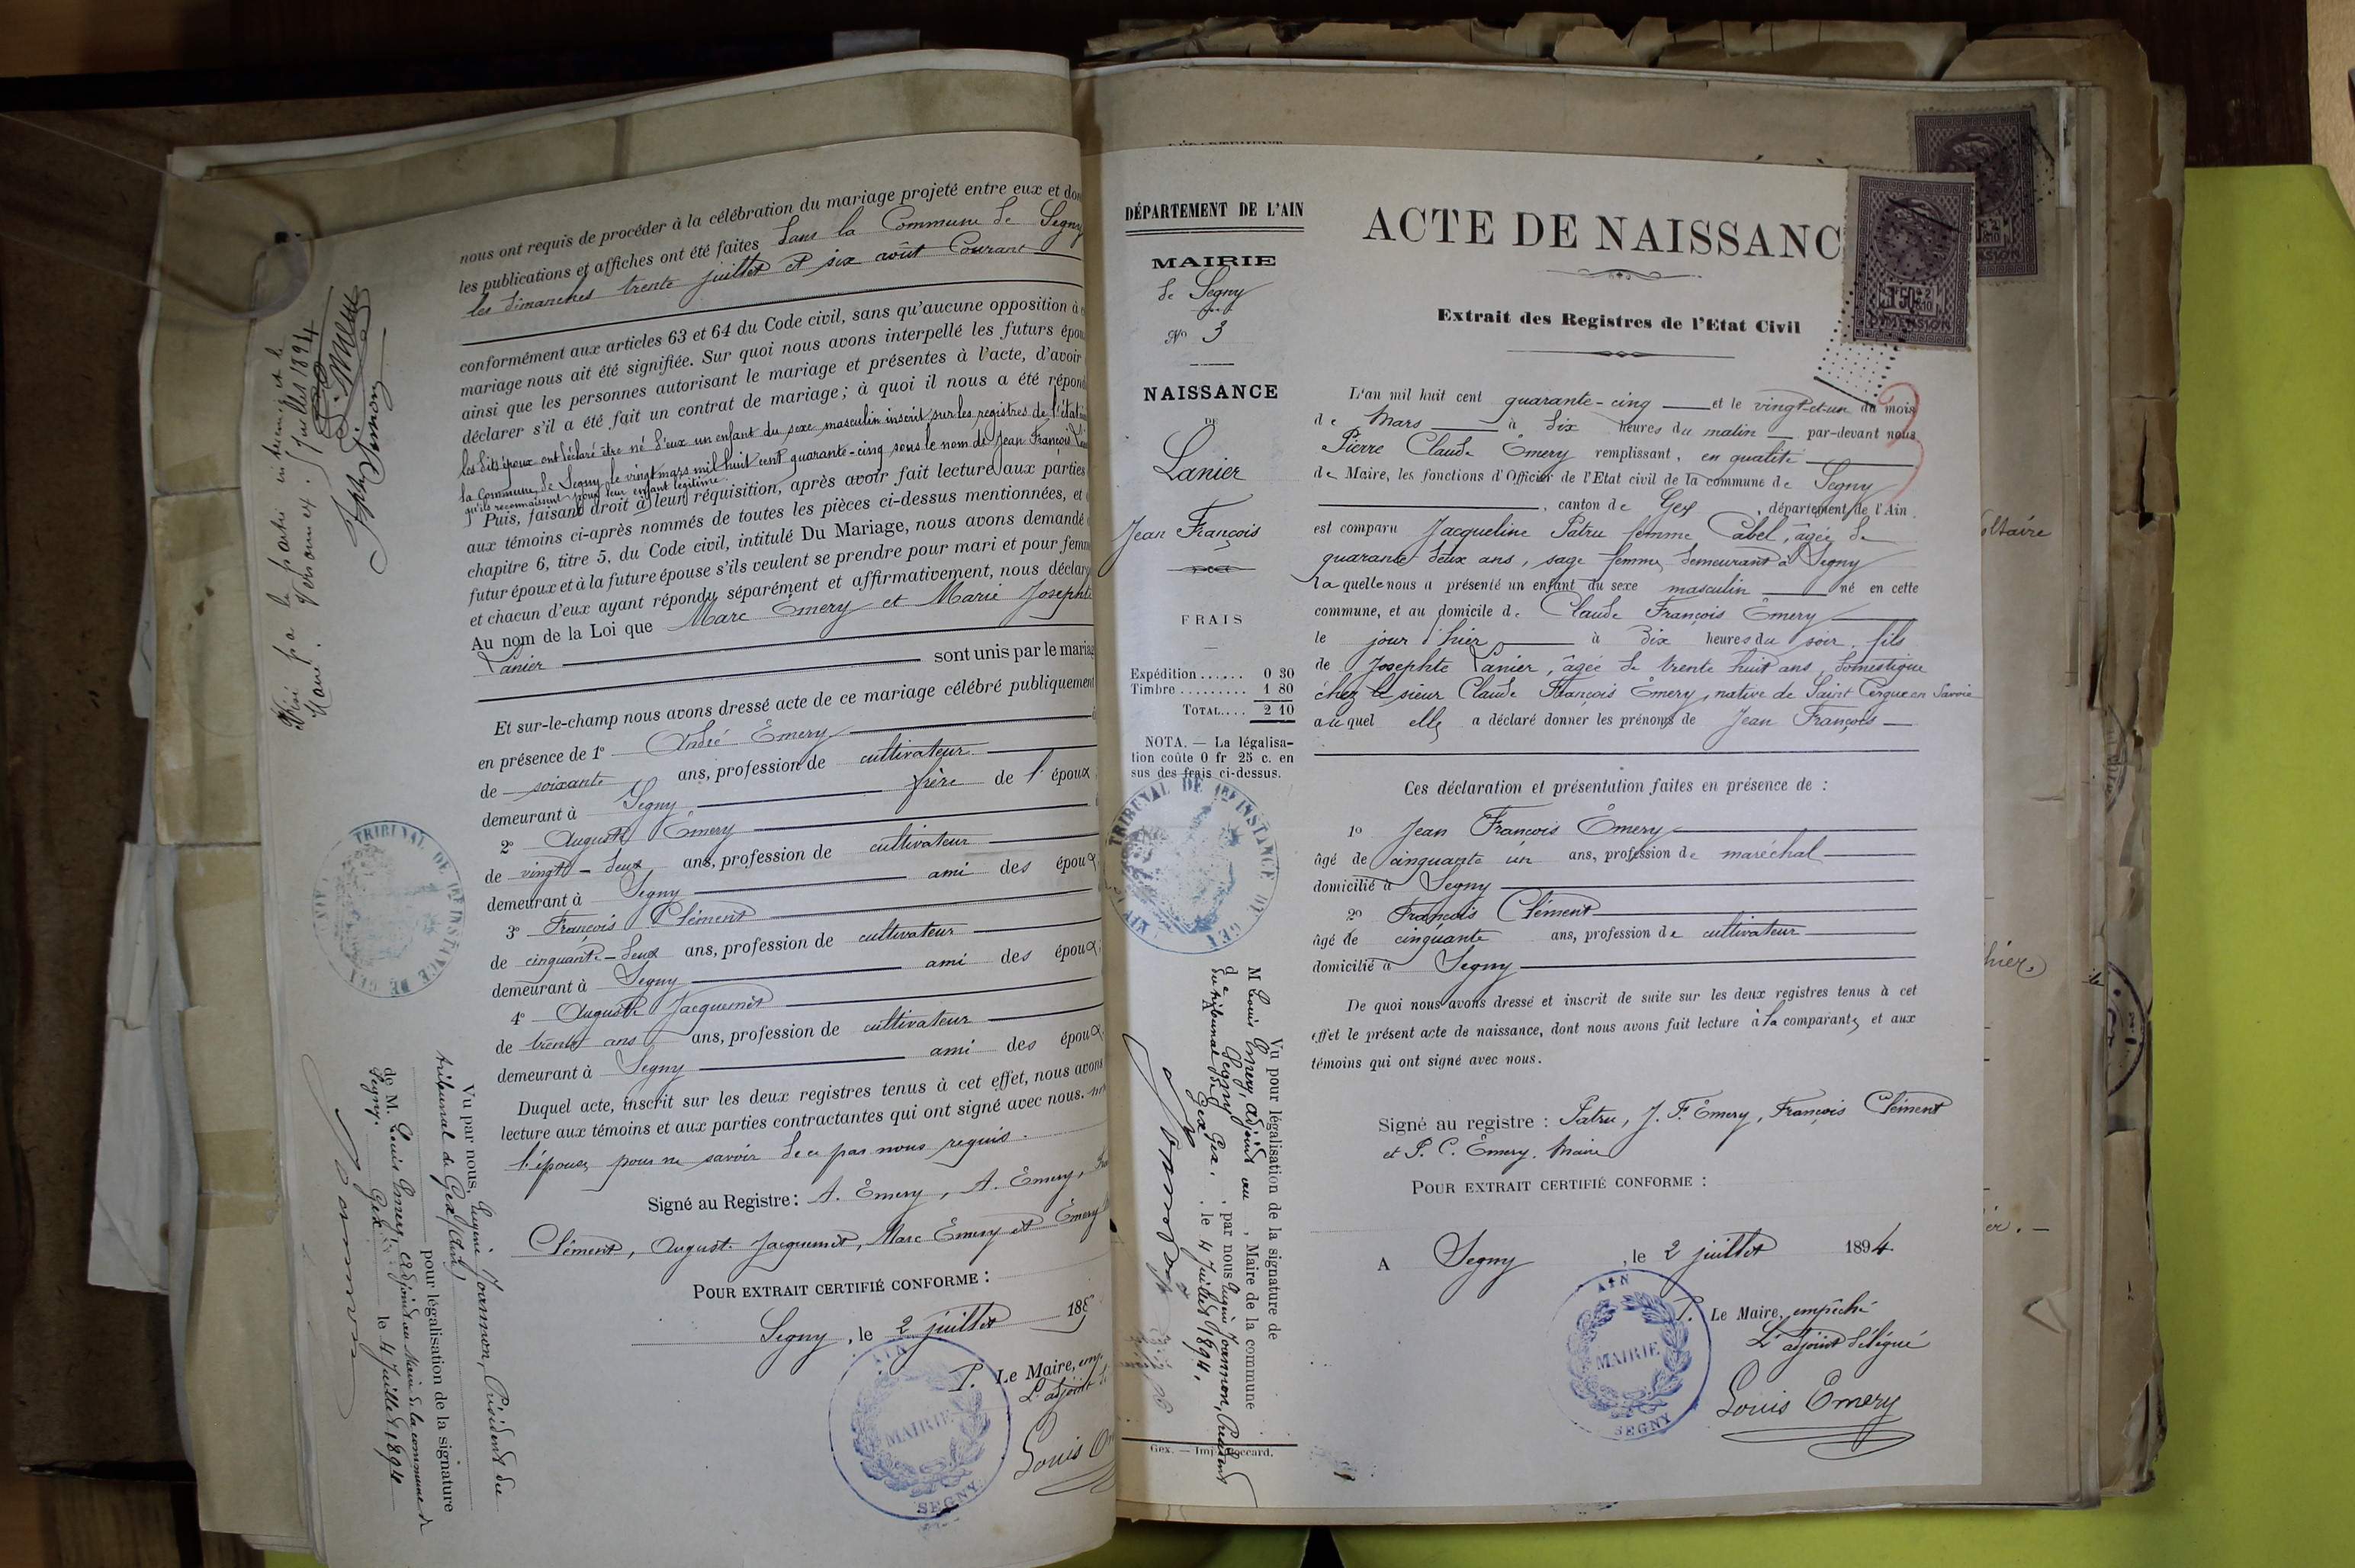 nous ont requis de procéder à la célébration du mariage projeté entre eux et don
les publications et affiches ont été faites dans la Commune de Segny
les dimanches trente juillet et six août Courant
conformément aux articles 63 et 64 du Code civil, sans qu'aucune opposition à
mariage nous ait été signifiée. Sur quoi nous avons interpellé les futurs épou
ainsi que les personnes autorisant le mariage et présentes à l'acte, d'avoir
déclarer s'il a été fait un contrat de mariage; à quoi il nous a été répon
les dits époux ont déclaré être né d'eux un enfant du sexe masculin inscrit sur les registres de l'état
la Commune de Segny le vingt mars mil huit cent quarante-cinq sous le nom de Jean François
qu'ils reconnaissent pour leur enfant légitime.
Puis, faisant droit à leur réquisition, après avoir fait lecture aux parties
aux témoins ci-après nommés de toutes les pièces ci-dessus mentionnées, et
chapitre 6, titre 5, du Code civil, intitulé Du Mariage, nous avons demandé
futur époux et à la future épouse s'ils veulent se prendre pour mari et pour femm
et chacun d'eux ayant répondu séparément et affirmativement, nous déclar
Au nom de la Loi que Marc Emery et Marie Josephte
Lanier sont unis par le maria
Et sur-le-champ nous avons dressé acte de ce mariage célébré publiquement
en présence de 1° André Emery
de soixante ans, profession de cultivateur
demeurant à Segny frère de l'époux
2° Auguste Emery
de vingt-deux ans, profession de cultivateur
demeurant à Segny ami des époux
3° François Clément
de cinquante-deux ans, profession de cultivateur
demeurant à Segny ami des époux
4° Auguste Jacquemet
de trente ans ans, profession de cultivateur
demeurant à Segny ami des époux
Duquel acte, inscrit sur les deux registres tenus à cet effet, nous avons
lecture aux témoins et aux parties contractantes qui ont signé avec nous. non
l'épouse pour ne savoir de ce par nous requis.
Signé au Registre: A. Emery, A. Emery,
Clément, August. Jacquemet, Marc Emery et Emery
POUR EXTRAIT CERTIFIÉ CONFORME :
Segny, le 2 juillet 18
P. Le Maire, emp
L'adjoint
Louis
AIN
MAIRIE
SEGNY
TRIBUNAL DE 1RE INSTANCE DE GEX
Juillet 1894
Vu par nous, Eugène Joannon, Président du
tribunal de Gex (Ain)
pour légalisation de la signature
de M. Louis Emery, adjoint au Maire de la commune de
Segny.
Gex le 4 Juillet 1894
DÉPARTEMENT DE L'AIN
MAIRIE
de Segny
N° 3
NAISSANCE
DE
Lanier
Jean François
FRAIS
Expédition...... 0 30
Timbre......... 1 80
TOTAL.... 2 10
NOTA. — La légalisa-
tion coûte 0 fr 25 c. en
sus des frais ci-dessus.
TRIBUNAL DE 1RE INSTANCE DE GEX
Vu pour légalisation de la signature de
M Louis Emery, adjoint au, Maire de la commune
de Segny, par nous Eugène Joannon, Président
du tribunal de Gex
A Gex, le 4 Juillet 1894,
Gex. — Imp. Beccard.
ACTE DE NAISSANC
Extrait des Registres de l'Etat Civil
1F50
DIMENSION
L'an mil huit cent quarante-cinq et le vingt-et-un du mois
de Mars à dix heures du matin par-devant nous
Pierre Claude Emery remplissant, en qualité
de Maire, les fonctions d'Officier de l'Etat civil de la commune de Segny
, canton de Gex, département de l'Ain.
est comparu Jacqueline Patru femme Cabel, âgée de
quarante-deux ans, sage femme, demeurant à Segny
laquelle nous a présenté un enfant du sexe masculin né en cette
commune, et au domicile de Claude François Emery
le jour d'hier à dix heures du soir, fils
de Josephte Lanier, âgée de trente huit ans, domestique
chez le sieur Claude François Emery, native de Saint Cergue en Savoie
auquel elle a déclaré donner les prénoms de Jean François
Ces déclaration et présentation faites en présence de :
1° Jean François Emery
âgé de cinquante un ans, profession de maréchal
domicilié à Segny
2° François Clément
âgé de cinquante ans, profession de cultivateur
domicilié à Segny
De quoi nous avons dressé et inscrit de suite sur les deux registres tenus à cet
effet le présent acte de naissance, dont nous avons fait lecture à la comparante et aux
témoins qui ont signé avec nous.
Signé au registre : Patru, J. F. Emery, François Clément
et P. C. Emery. Maire
POUR EXTRAIT CERTIFIÉ CONFORME :
A Segny, le 2 juillet 1894.
P. Le Maire, empêché
L'adjoint délégué
Louis Emery
AIN
MAIRIE
SEGNY